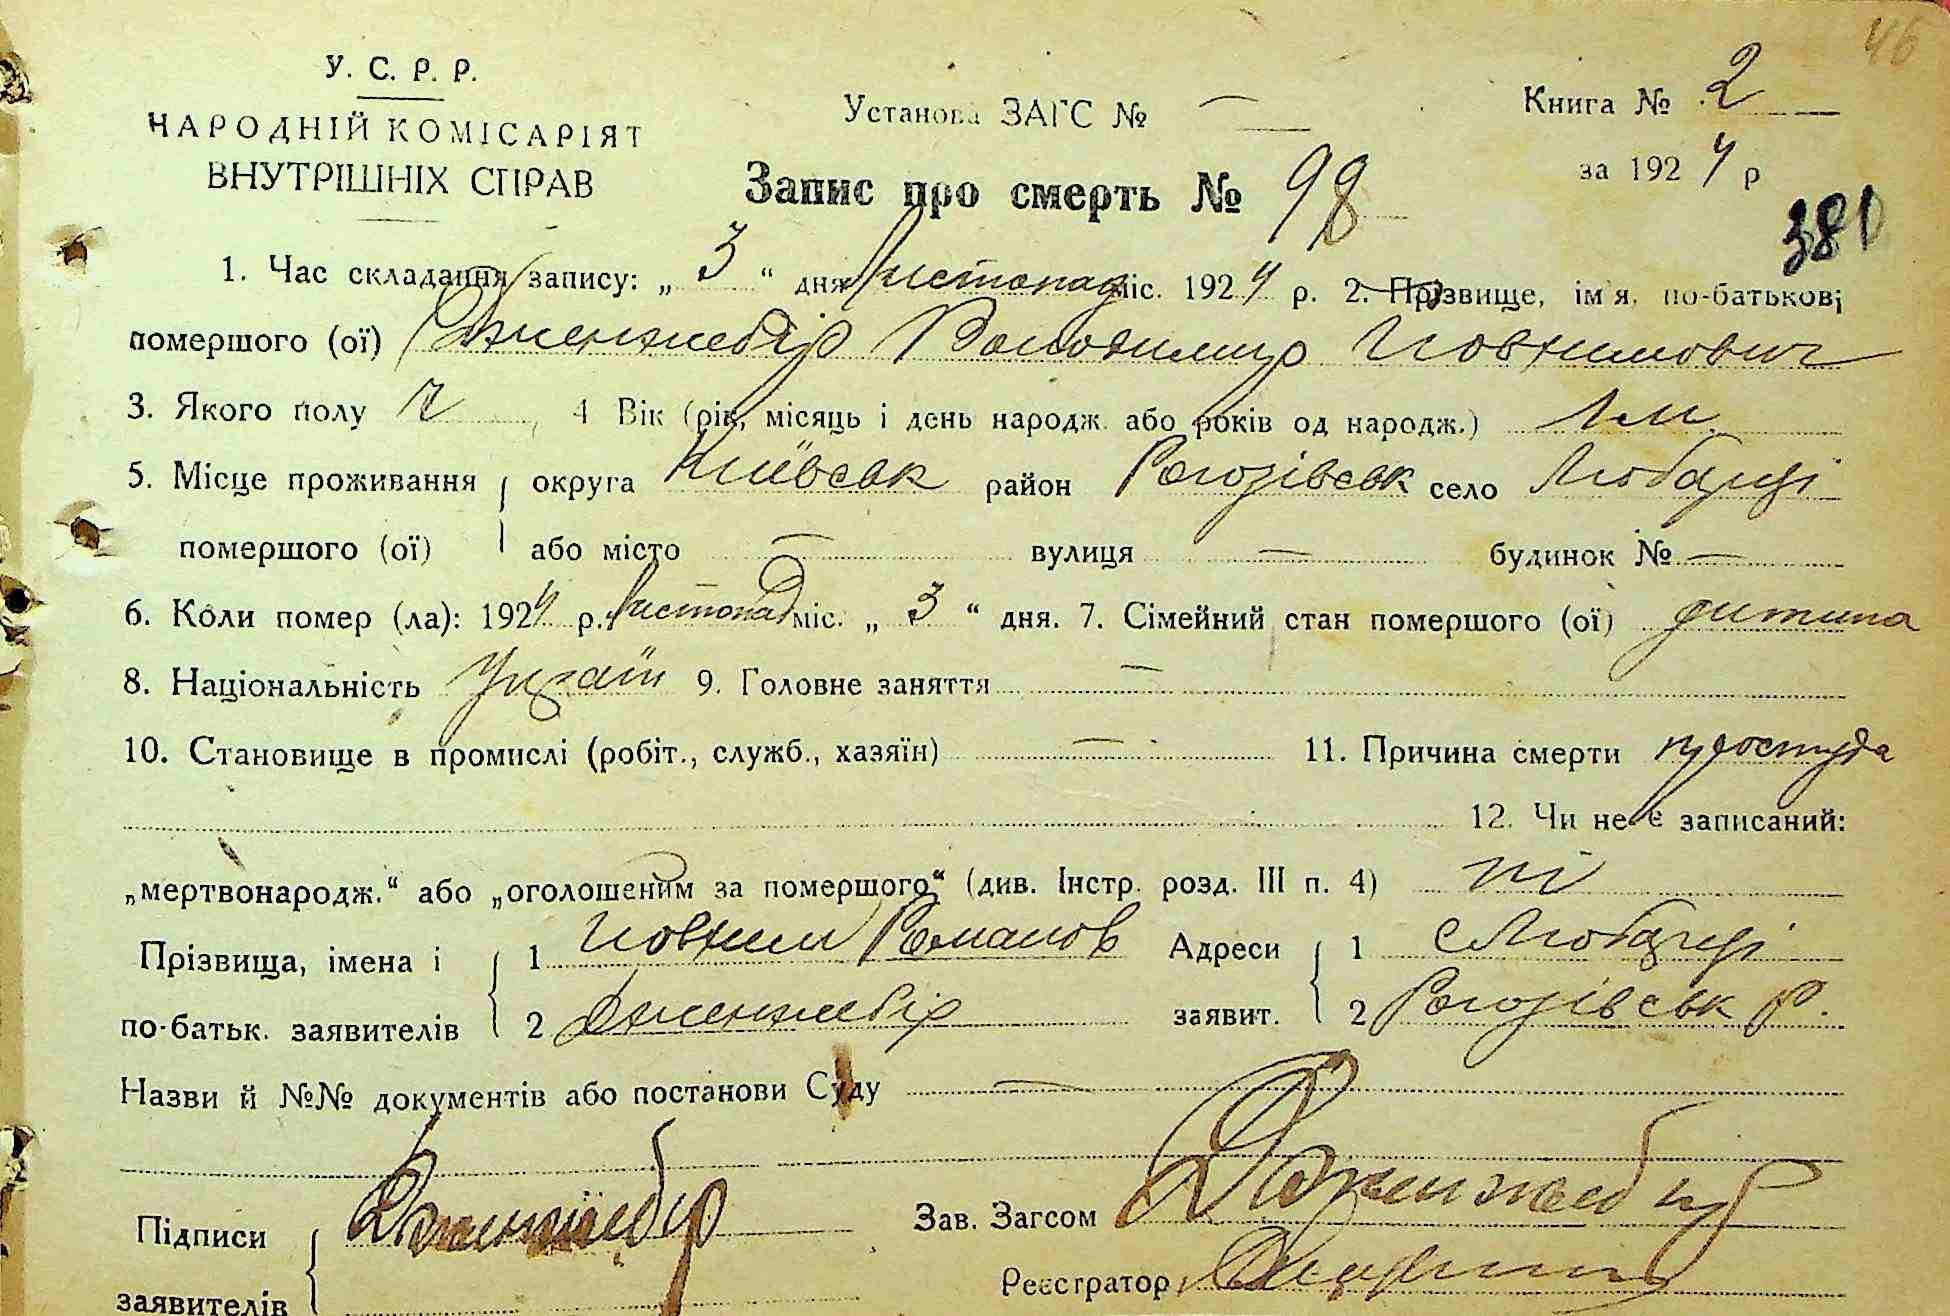 46
У. С. Р. Р.
НАРОДНІЙ КОМІСАРІЯТ
ВНУТРІШНІХ СПРАВ
Установа ЗАГС № —
Книга № 2
за 1924 р
Запис про смерть № 98
381
1. Час складання запису: „ 3 “ дня Листопад міс. 1924 р. 2. Прізвище, ім'я, по-батькові
помершого (ої) Дженжебір Володимир Йовхимович
3. Якого полу ч 4 Вік (рік, місяць і день народж. або років од народж.) 1 м.
5. Місце проживання округа Київськ район Рогозівськ село Любарці
помершого (ої) або місто — вулиця — будинок № —
6. Коли помер (ла): 1924 р. Листопад міс. „ 3 “ дня. 7. Сімейний стан помершого (ої) дитина
8. Національність Україн 9. Головне заняття —
10. Становище в промислі (робіт., служб., хазяїн) — 11. Причина смерти простуда
12. Чи не є записаний:
„мертвонародж.“ або „оголошеним за помершого“ (див. Інстр. розд. III п. 4) ні
Прізвища, імена і 1 Йовхим Романов Адреси 1 с Любарці
по-батьк. заявителів 2 Дженжебір заявит. 2 Рогозівськ р.
Назви й №№ документів або постанови Суду —
Підписи Дженжебір Зав. Загсом Дженжебір
Реєстратор
заявителів